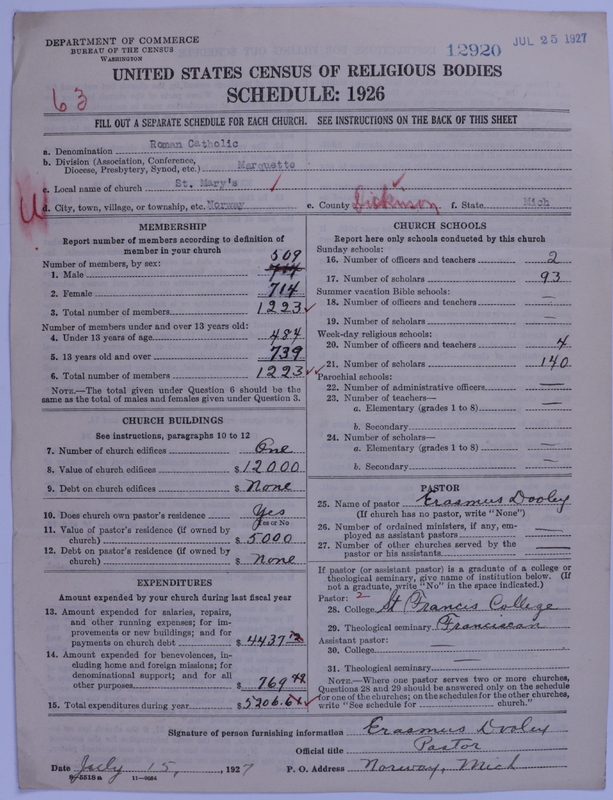 DEPARTMENT OF COMMERCE
BUREAU OF THE CENSUS
WASHINGTON
12920
JUL 25 1927
UNITED STATES CENSUS OF RELIGIOUS BODIES
SCHEDULE: 1926
63
FILL OUT A SEPARATE SCHEDULE FOR EACH CHURCH. SEE INSTRUCTIONS ON THE BACK OF THIS SHEET
a. Denomination Roman Catholic
b. Division (Association, Conference,
Diocese, Presbytery, Synod, etc.) Marquette
c. Local name of church St. Mary's
d. City, town, village, or township, etc. Norway e. County Dickinson f. State Mich
MEMBERSHIP
Report number of members according to definition of
member in your church
Number of members, by sex: 509
1. Male
2. Female 714
3. Total number of members 1223
Number of members under and over 13 years old:
4. Under 13 years of age 484
5. 13 years old and over 739
6. Total number of members 1223
NOTE.—The total given under Question 6 should be the
same as the total of males and females given under Question 3.
CHURCH BUILDINGS
See instructions, paragraphs 10 to 12
7. Number of church edifices One
8. Value of church edifices $ 12000
9. Debt on church edifices $ None
10. Does church own pastor's residence Yes
Yes or No
11. Value of pastor's residence (if owned by
church) $ 5000
12. Debt on pastor's residence (if owned by
church) $ None
EXPENDITURES
Amount expended by your church during last fiscal year
13. Amount expended for salaries, repairs,
and other running expenses; for im-
provements or new buildings; and for
payments on church debt $ 4437.72
14. Amount expended for benevolences, in-
cluding home and foreign missions; for
denominational support; and for all
other purposes $ 769
15. Total expenditures during year $ 5206.61
CHURCH SCHOOLS
Report here only schools conducted by this church
Sunday schools:
16. Number of officers and teachers 2
17. Number of scholars 93
Summer vacation Bible schools:
18. Number of officers and teachers —
19. Number of scholars —
Week-day religious schools:
20. Number of officers and teachers 4
21. Number of scholars 140
Parochial schools:
22. Number of administrative officers —
23. Number of teachers—
a. Elementary (grades 1 to 8) —
b. Secondary
24. Number of scholars—
a. Elementary (grades 1 to 8) —
b. Secondary —
PASTOR
25. Name of pastor Erasmus Dooley
(If church has no pastor, write "None")
26. Number of ordained ministers, if any, em-
ployed as assistant pastors —
27. Number of other churches served by the
pastor or his assistants —
If pastor (or assistant pastor) is a graduate of a college or
theological seminary, give name of institution below. (If
not a graduate, write "No" in the space indicated.)
Pastor: 2
28. College St Francis College
29. Theological seminary Franciscan
Assistant pastor: —
30. College —
31. Theological seminary —
NOTE.—Where one pastor serves two or more churches,
Questions 28 and 29 should be answered only on the schedule
for one of the churches; on the schedules for the other churches,
write "See schedule for church."
Signature of person furnishing information Erasmus Dooley
Official title Pastor
Date July 15, 1927 P. O. Address Norway, Mich
8-5518a 11-9064